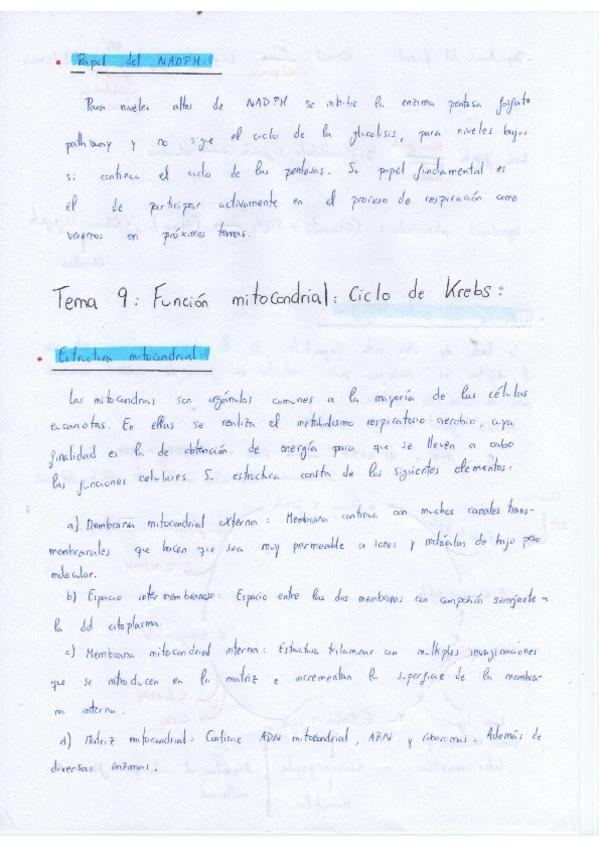 • Papel del NADPH:
Para niveles altos de NADPH se inhibe la enzima pentosa fosfato
pathway y no sigue el ciclo de la glucolisis, para niveles bajos
si continua el ciclo de las pentosas. Su papel fundamental es
el de participar activamente en el proceso de respiración como
veremos en próximos temas.
Tema 9: Función mitocondrial: Ciclo de Krebs:
• Estructura mitocondrial:
Las mitocondrias son orgánulos comunes a la mayoría de las células
eucariotas. En ellas se realiza el metabolismo respiratorio aerobio, cuya
finalidad es la de obtención de energía para que se lleven a cabo
las funciones celulares. Su estructura consta de los siguientes elementos:
a) Membrana mitocondrial externa: Membrana continua con muchos canales trans-
membranales que hacen que sea muy permeable a iones y moléculas de bajo peso
molecular.
b) Espacio intermembranoso: Espacio entre las dos membranas con composición semejante a
la del citoplasma
c) Membrana mitocondrial interna: Estructura trilaminar con multiples invaginaciones
que se introducen en la matriz e incrementan la superficie de la membra-
na interna.
d) Matriz mitocondrial: Contiene ADN mitocondrial, ARN y ribosomas. Además de
diversas enzimas.